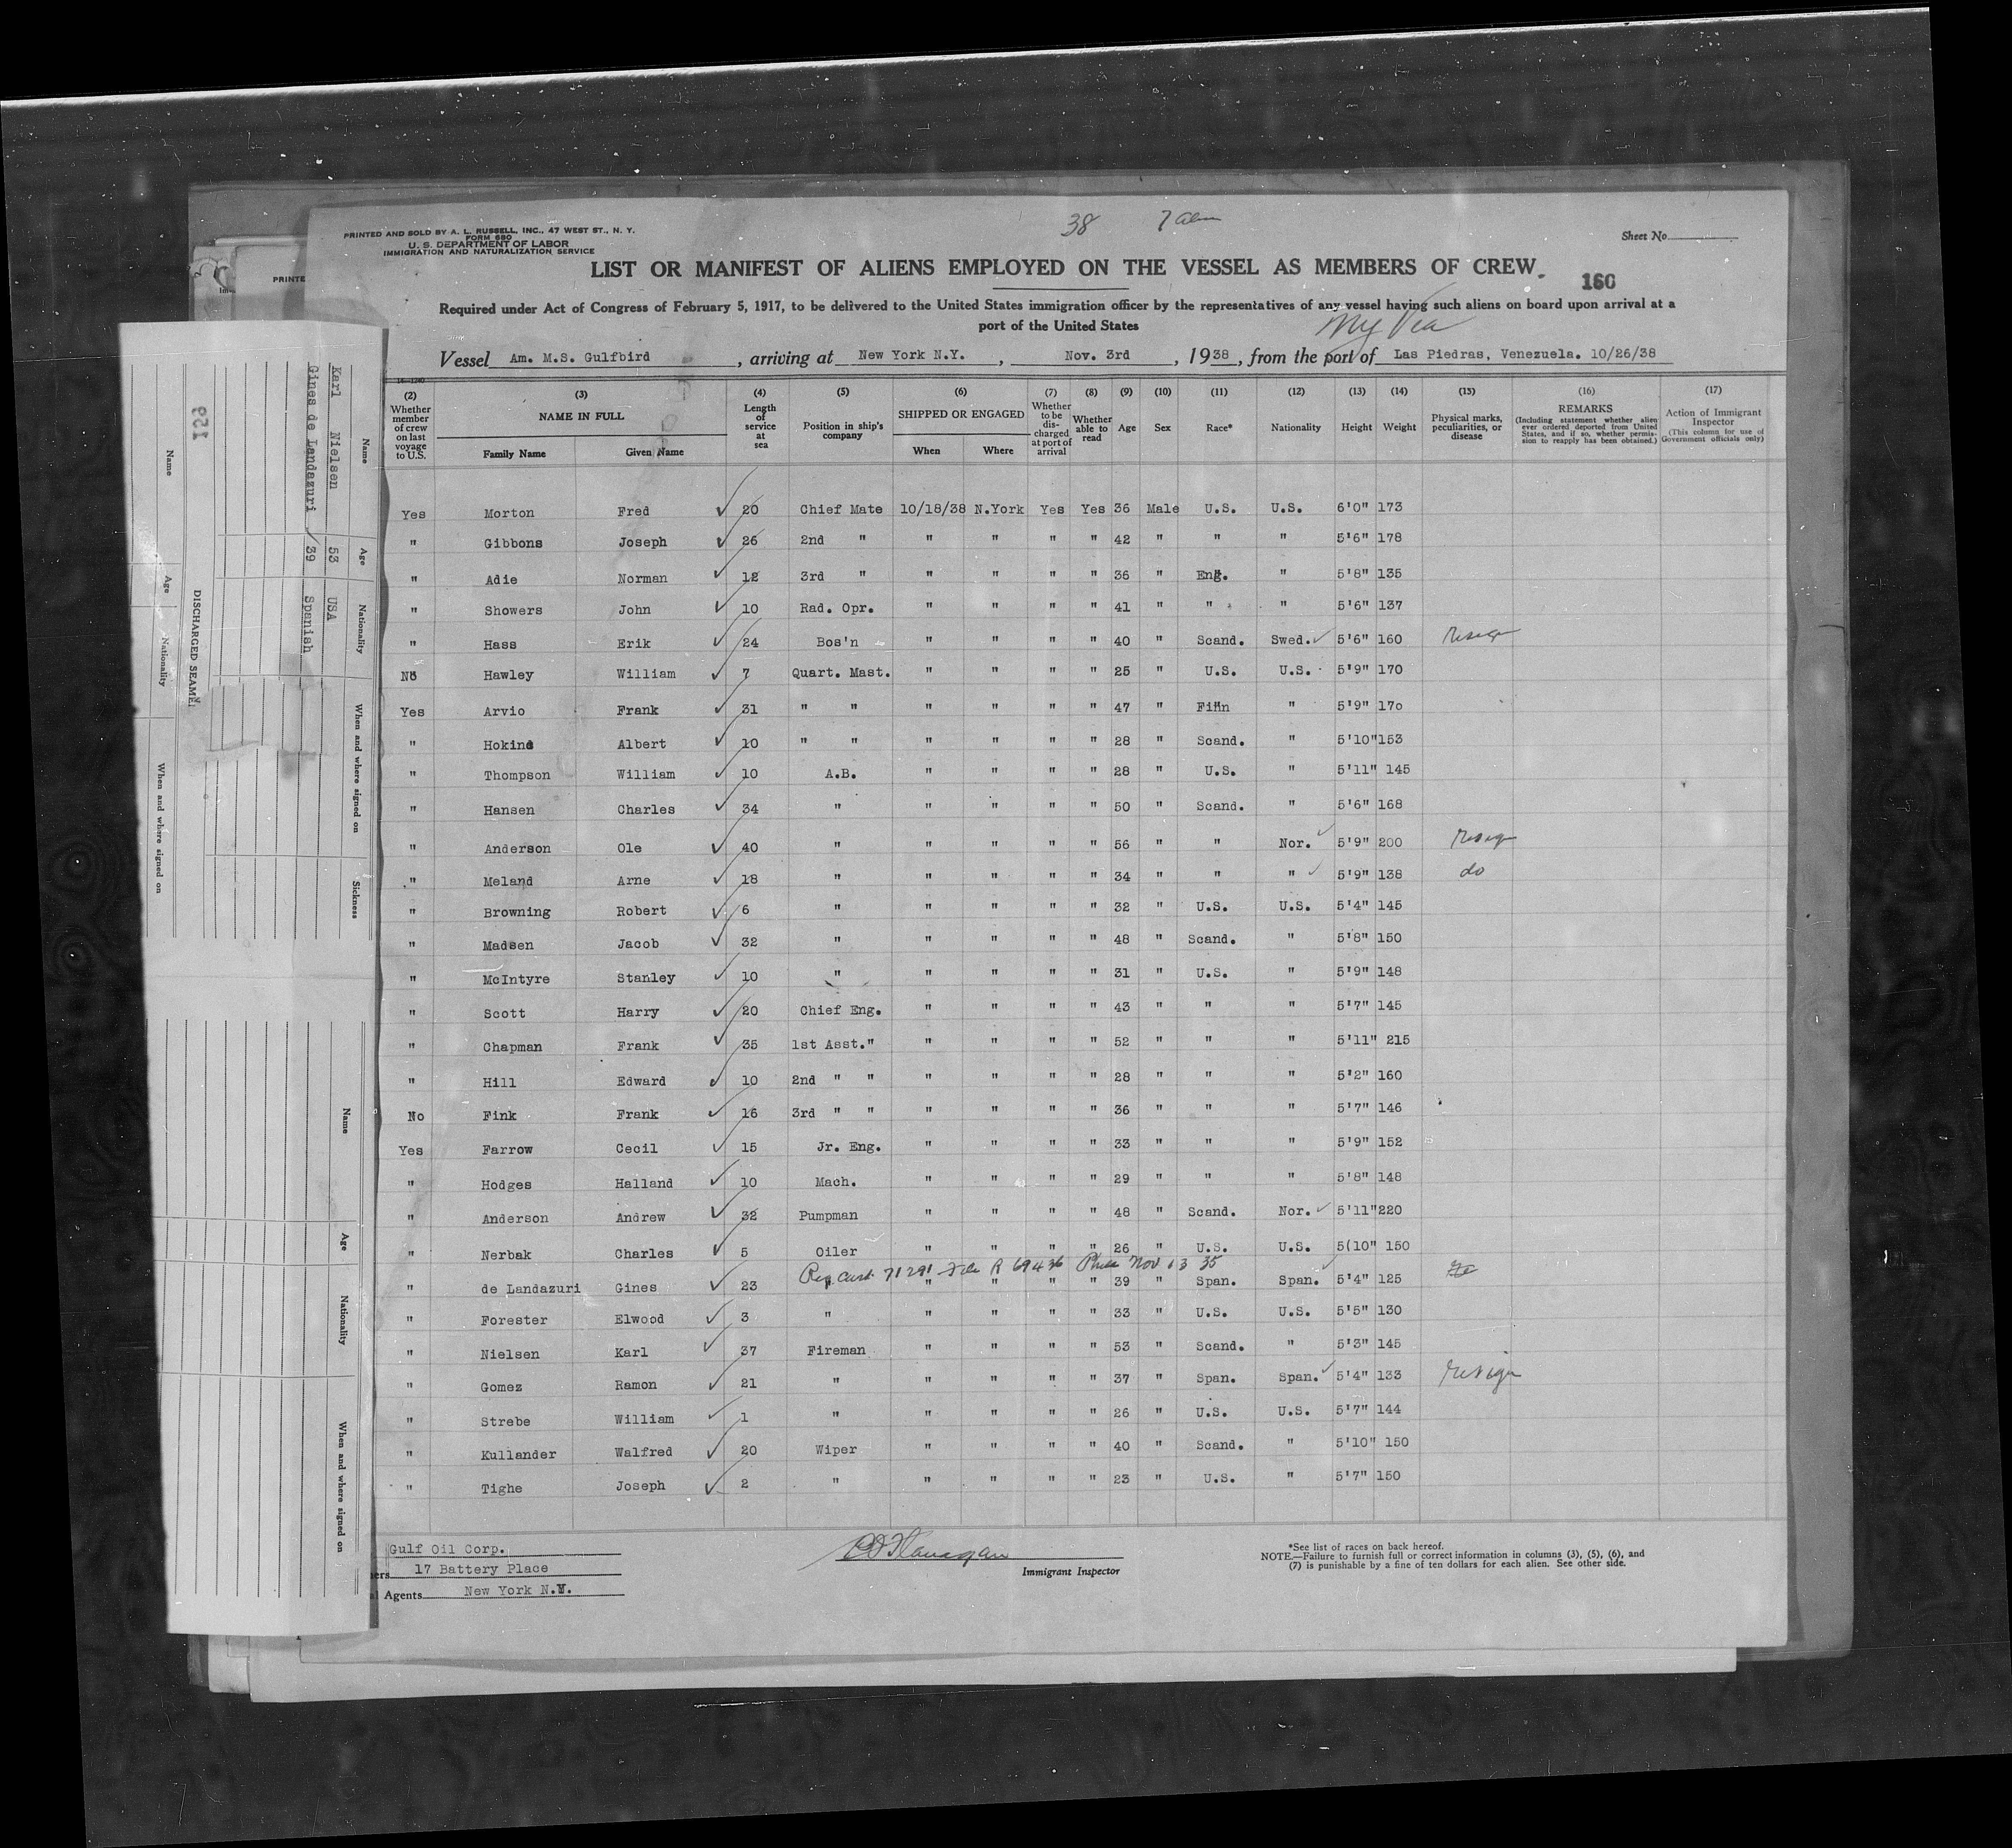 38 7 am
PRINTED AND SOLD BY A. L. RUSSELL, INC., 47 WEST ST., N. Y.
FORM 680
U. S. DEPARTMENT OF LABOR
IMMIGRATION AND NATURALIZATION SERVICE
Sheet No.
LIST OR MANIFEST OF ALIENS EMPLOYED ON THE VESSEL AS MEMBERS OF CREW
160
Required under Act of Congress of February 5, 1917, to be delivered to the United States immigration officer by the representatives of any vessel having such aliens on board upon arrival at a
port of the United States
Vessel Am. M.S. Gulfbird, arriving at New York N.Y., Nov. 3rd, 1938, from the port of Las Piedras, Venezuela. 10/26/38
(2) (3) (4) (5) (6) (7) (8) (9) (10) (11) (12) (13) (14) (15) (16) (17)
Whether member of crew on last voyage to U.S. NAME IN FULL Family Name Given Name Length of service at sea Position in ship's company SHIPPED OR ENGAGED When Where Whether to be discharged at port of arrival Whether able to read Age Sex Race* Nationality Height Weight Physical marks, peculiarities, or disease REMARKS (Including statement whether alien ever ordered deported from United States, and if so, whether permission to reapply has been obtained.) Action of Immigrant Inspector (This column for use of Government officials only)
Yes Morton Fred ✓ 20 Chief Mate 10/18/38 N.York Yes Yes 36 Male U.S. U.S. 6'0" 173
" Gibbons Joseph ✓ 26 2nd " " " " " 42 " " " 5'6" 178
" Adie Norman ✓ 12 3rd " " " " " 36 " Eng. " 5'8" 135
" Showers John ✓ 10 Rad. Opr. " " " " 41 " " " 5'6" 137
" Hass Erik ✓ 24 Bos'n " " " " 40 " Scand. Swed. ✓ 5'6" 160
No Hawley William ✓ 7 Quart. Mast. " " " " 25 " U.S. U.S. 5'9" 170
Yes Arvio Frank ✓ 31 " " " " " " 47 " Finn " 5'9" 170
" Hokind Albert ✓ 10 " " " " " " 28 " Scand. " 5'10" 153
" Thompson William ✓ 10 A.B. " " " " 28 " U.S. " 5'11" 145
" Hansen Charles ✓ 34 " " " " " 50 " Scand. " 5'6" 168
" Anderson Ole ✓ 40 " " " " " 56 " " Nor. ✓ 5'9" 200
" Meland Arne ✓ 18 " " " " " 34 " " " ✓ 5'9" 138 do
" Browning Robert ✓ 6 " " " " " 32 " U.S. U.S. 5'4" 145
" Madsen Jacob ✓ 32 " " " " " 48 " Scand. " 5'8" 150
" McIntyre Stanley ✓ 10 " " " " " 31 " U.S. " 5'9" 148
" Scott Harry ✓ 20 Chief Eng. " " " " 43 " " " 5'7" 145
" Chapman Frank ✓ 35 1st Asst." " " " " 52 " " " 5'11" 215
" Hill Edward ✓ 10 2nd " " " " " " 28 " " " 5'2" 160
No Fink Frank ✓ 16 3rd " " " " " " 36 " " " 5'7" 146
Yes Farrow Cecil ✓ 15 Jr. Eng. " " " " 33 " " " 5'9" 152
" Hodges Halland ✓ 10 Mach. " " " " 29 " " " 5'8" 148
" Anderson Andrew ✓ 32 Pumpman " " " " 48 " Scand. Nor. ✓ 5'11" 220
" Nerbak Charles ✓ 5 Oiler " " " " 26 " U.S. U.S. 5(10" 150
Reg. Card 71291 File R 69436 Phila Nov 13 35
" de Landazuri Gines ✓ 23 " " " " 39 " Span. Span. ✓ 5'4" 125
" Forester Elwood ✓ 3 " " " " " 33 " U.S. U.S. 5'5" 130
" Nielsen Karl ✓ 37 Fireman " " " " 53 " Scand. " 5'3" 145
" Gomez Ramon ✓ 21 " " " " " 37 " Span. Span. ✓ 5'4" 133
" Strebe William ✓ 1 " " " " " 26 " U.S. U.S. 5'7" 144
" Kullander Walfred ✓ 20 Wiper " " " " 40 " Scand. " 5'10" 150
" Tighe Joseph ✓ 2 " " " " " 23 " U.S. " 5'7" 150
Gulf Oil Corp.
17 Battery Place
Agents New York N.Y.
Immigrant Inspector
*See list of races on back hereof.
NOTE.—Failure to furnish full or correct information in columns (3), (5), (6), and
(7) is punishable by a fine of ten dollars for each alien. See other side.
PRINTE
Name Age Nationality When and where signed on Sickness
Karl Nielsen 53 USA
Gines de Landazuri 39 Spanish
DISCHARGED SEAMEN
Name Age Nationality When and where signed on
Name Age Nationality When and where signed on